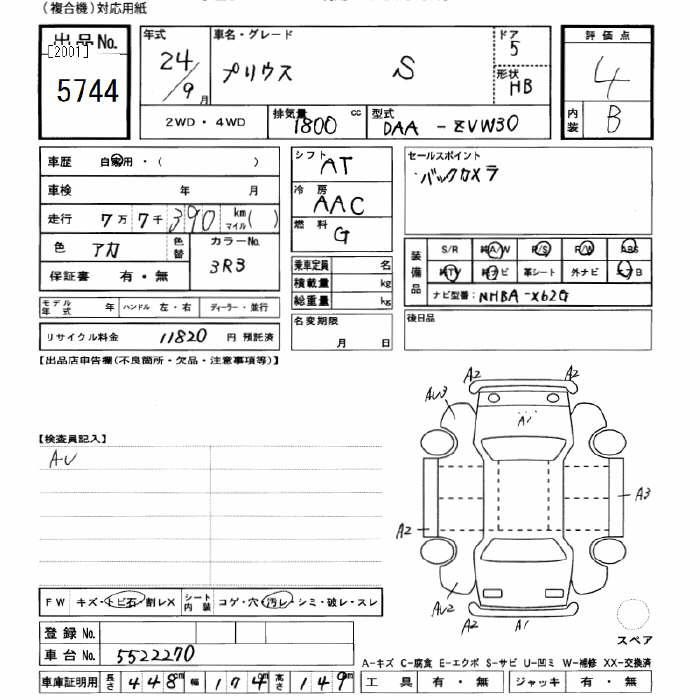 (複合機)対応用紙
出品No.
[2001]
5744
年式
24/9月
車名・グレード
プリウス S
ドア
5
形状
HB
2WD・4WD
排気量
1800 cc
型式
DAA-ZVW30
評価点
4
内装
B
車歴 自家用・( )
車検 年 月
走行 7万7千390 km マイル( )
色 アカ 色替
カラーNo.
3R3
保証書 有・無
モデル年式 年 ハンドル 左・右 ディーラー・並行
リサイクル料金 11820 円 預託済
シフト
AT
冷房
AAC
燃料
G
乗車定員 名
積載量 kg
総重量 kg
名変期限
月 日
セールスポイント
バックカメラ
装備品
S/R 純A/W P/S P/W ABS
純TV 純ナビ 革シート 外ナビ エアB
ナビ型番: NHBA-X62G
後日品
【出品店申告欄(不良箇所・欠品・注意事項等)】
【検査員記入】
AU
A2 A2
AU3
A1
A2
A3
AU2
A2 A1
スペア
FW キズ・トビ石・割レX シート内装 コゲ・穴・汚レ・シミ・破レ・スレ
登録No.
車台No. 5522270
車庫証明用 長さ 448cm 幅 174cm 高さ 149cm
A-キズ C-腐食 E-エクボ S-サビ U-凹ミ W-補修 XX-交換済
工具 有・無 ジャッキ 有・無